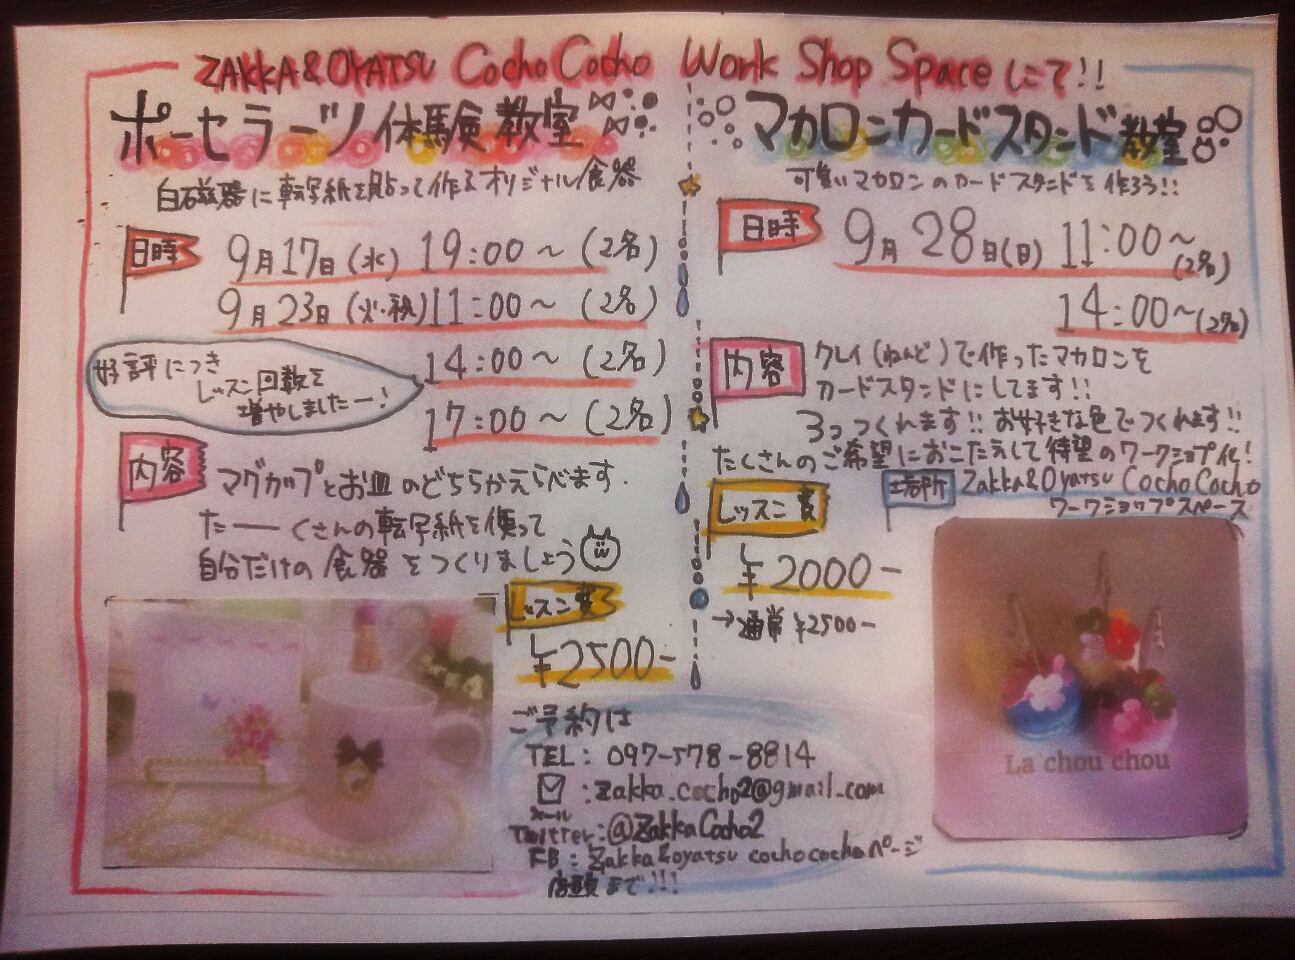 ZAKKA&OYATSU CochoCocho Work Shop Space にて!!
ポーセラーツ体験教室
白磁器に転写紙を貼って作るオリジナル食器
日時
9月17日(水) 19:00~ (2名)
9月23日(火・祝)11:00~ (2名)
14:00~ (2名)
17:00~ (2名)
好評につき
レッスン回数を
増やしましたー!
内容
マグカップとお皿のどちらかえらべます.
たーーくさんの転写紙を使って
自分だけの食器をつくりましょう
レッスン費
¥2500-
マカロンカードスタンド教室
可愛いマカロンのカードスタンドを作ろう!!
日時
9月28日(日) 11:00~
(2名)
14:00~(2名)
内容
クレイ(ねんど)で作ったマカロンを
カードスタンドにしてます!!
3つつくれます!! お好きな色でつくれます!!
たくさんのご希望におこたえして待望のワークショップ化!
場所
Zakka&Oyatsu CochoCocho
ワークショップスペース
レッスン費
¥2000-
→通常¥2500-
La chou chou
ご予約は
TEL: 097-578-8814
メール
:zakka.cocho2@gmail.com
Twitter:@ZakkaCocho2
FB:Zakka&oyatsu cochocochoページ
店頭まで!!!